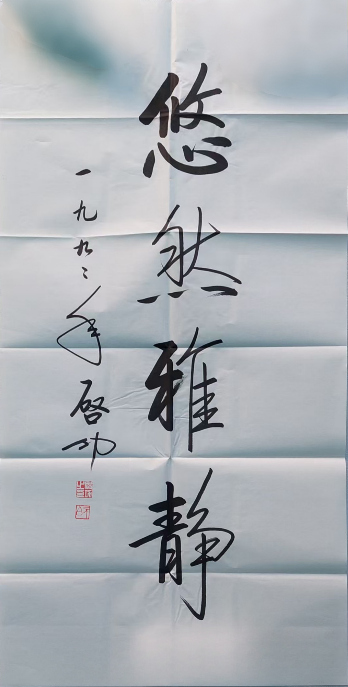 悠然雅静
一九九二年 啓功